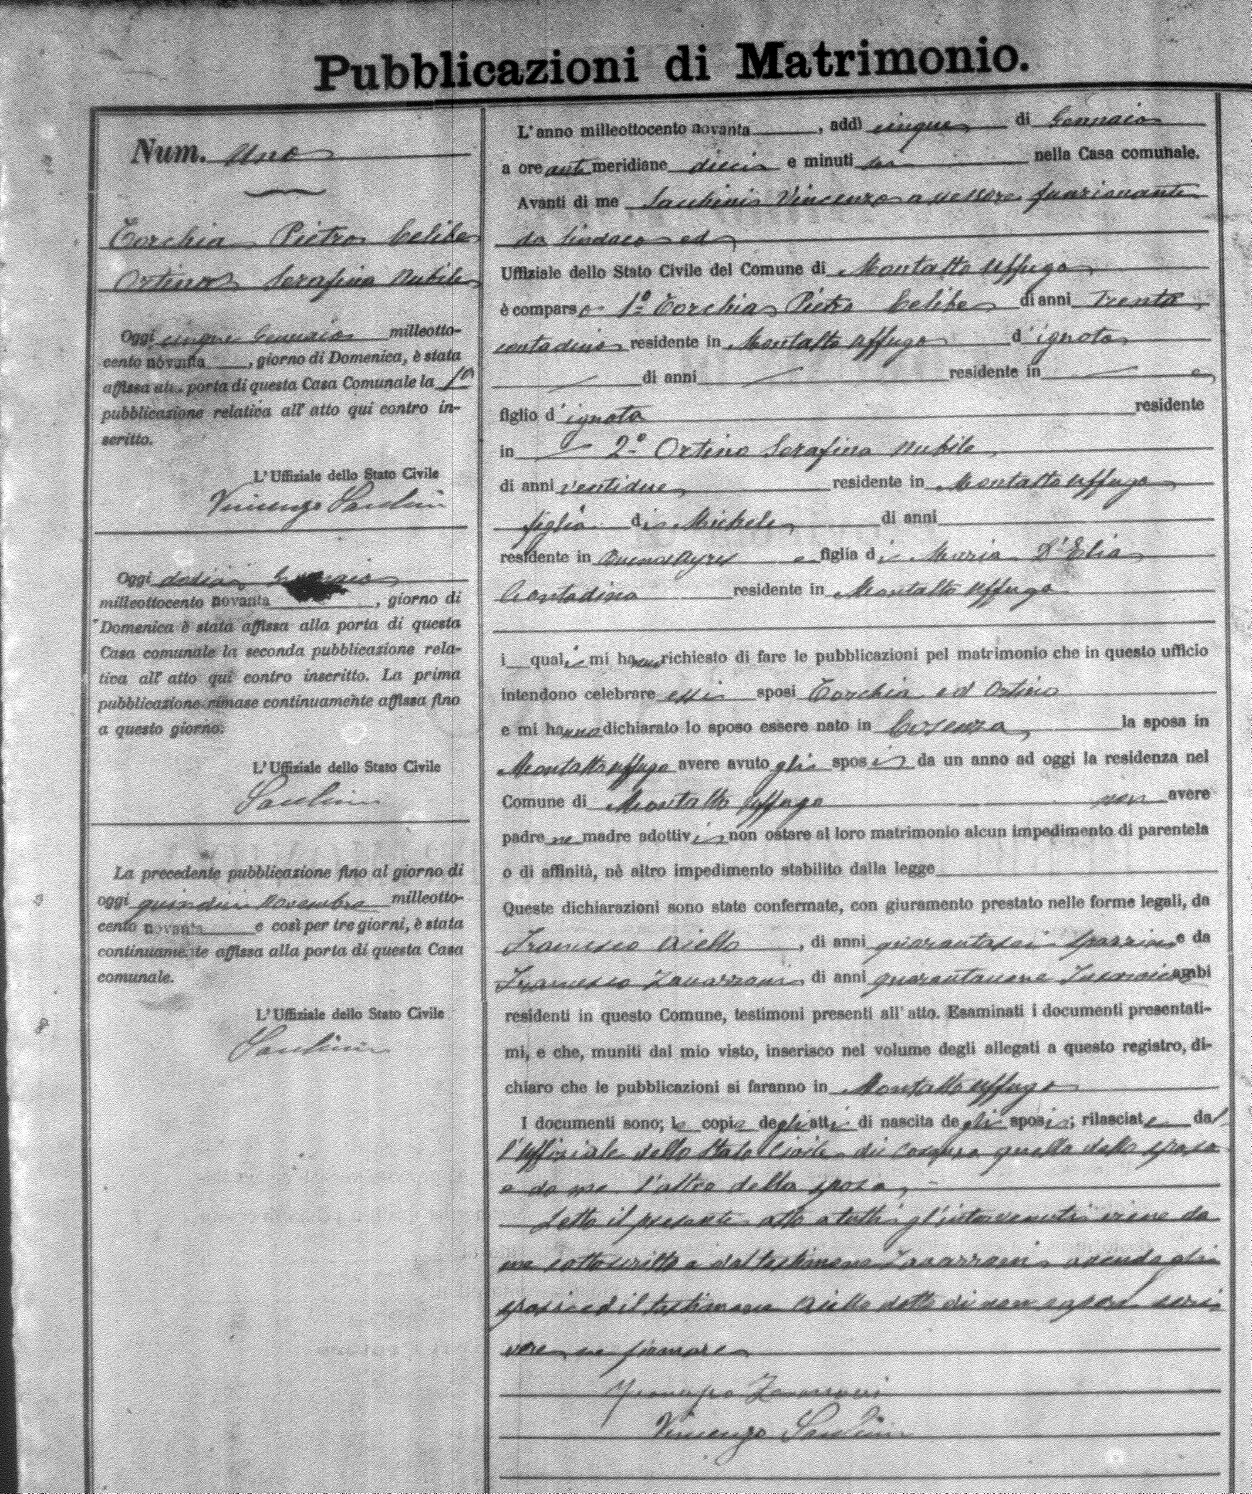 Pubblicazioni di Matrimonio.
Num. Uno
Torchia Pietro Celibe
Ortino Serafina nubile
Oggi cinque Gennaio milleotto-
cento novanta, giorno di Domenica, è stata
affissa alla porta di questa Casa Comunale la 1ª
pubblicazione relativa all' atto qui contro in-
scritto.
L' Uffiziale dello Stato Civile
Vincenzo
Oggi dodici Gennaio
milleottocento novanta, giorno di
Domenica è stata affissa alla porta di questa
Casa comunale la seconda pubblicazione rela-
tiva all' atto qui contro inscritto. La prima
pubblicazione rimase continuamente affissa fino
a questo giorno.
L' Uffiziale dello Stato Civile
La precedente pubblicazione fino al giorno di
oggi milleotto-
cento novanta e così per tre giorni, è stata
continuamente affissa alla porta di questa Casa
comunale.
L' Uffiziale dello Stato Civile
L' anno milleottocento novanta, addì cinque di Gennaio
a ore anti meridiane dieci e minuti sei nella Casa comunale.
Avanti di me Vincenzo assessore funzionante
da Sindaco ed
Uffiziale dello Stato Civile del Comune di Montalto Uffugo
è comparso 1º Torchia Pietro Celibe di anni trenta
contadino residente in Montalto Uffugo d' ignoto
di anni residente in e
figlio d' ignota residente
in 2º Ortino Serafina nubile
di anni ventidue residente in Montalto Uffugo
figlia di Michele di anni
residente in Buenos Ayres e figlia di Maria D'Elia
Contadina residente in Montalto Uffugo
i quali mi hanno richiesto di fare le pubblicazioni pel matrimonio che in questo ufficio
intendono celebrare essi sposi Torchia ed Ortino
e mi hanno dichiarato lo sposo essere nato in Cosenza, la sposa in
Montalto Uffugo avere avuto gli sposi da un anno ad oggi la residenza nel
Comune di Montalto Uffugo non avere
padre ne madre adottivi non ostare al loro matrimonio alcun impedimento di parentela
o di affinità, nè altro impedimento stabilito dalla legge
Queste dichiarazioni sono state confermate, con giuramento prestato nelle forme legali, da
Francesco Aiello, di anni quarantasei spazzino e da
Francesco Zavarroni di anni quarantanove ambi
residenti in questo Comune, testimoni presenti all' atto. Esaminati i documenti presentati-
mi, e che, muniti dal mio visto, inserisco nel volume degli allegati a questo registro, di-
chiaro che le pubblicazioni si faranno in Montalto Uffugo
I documenti sono; le copie degli atti di nascita degli sposi; rilasciate dal
l'Uffiziale dello Stato Civile di Cosenza quella dello sposo
e da me l'altra della sposa,
Letto il presente atto a tutti gl'intervenuti viene da
me sottoscritto e dal testimone Zavarroni avendo gli
sposi ed il testimone Aiello detto di non sapere scri
vere ne firmare
Francesco Zavarroni
Vincenzo